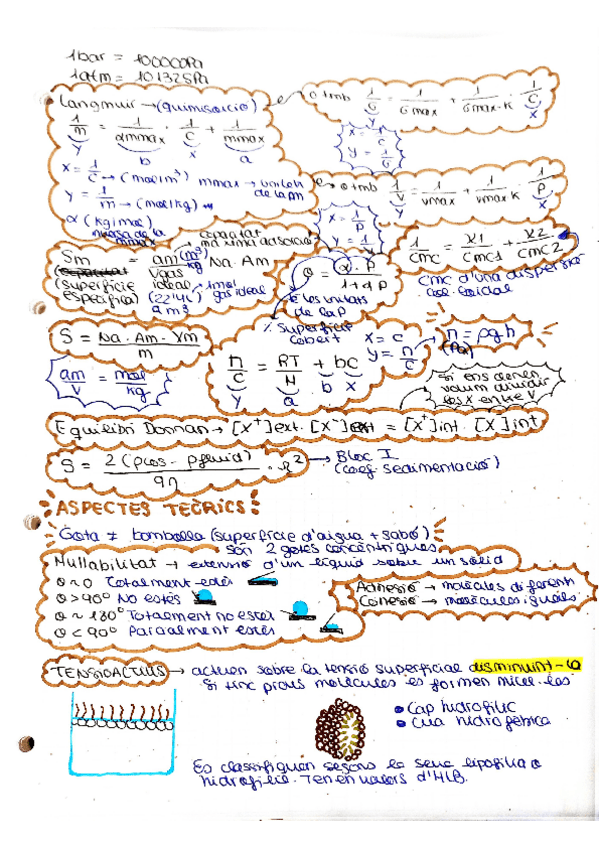 1bar = 100000Pa
1atm = 101325Pa
Langmuir → (quimisorció)
1/m = 1/αmmax · 1/C + 1/mmax
y b x a
x = 1/C → (mol/m³) mmax → unitats de la m
y = 1/m → (mol/kg)
α (kg/mol)
inversa de la mmax
o tmb 1/G = 1/Gmax + 1/Gmax·K · 1/C
y x
x = 1/C
y = 1/G
o tmb 1/V = 1/Vmax + 1/Vmax K · 1/P
y x
x = 1/P
y = 1/V
capacitat màxima adsorció
Sm = am (m³/kg) / Vgas ideal · Na · Am
(capacitat)
(superfície específica) (22'4L) → 1mol gas ideal
a m³
θ = α·P / 1+α·P
les unitats de la P
% superfície cobert
1/cmc = x1/cmc1 + x2/cmc2
cmc d'una dispersió col·loidal
S = Na · Am · Vm / m
am/V = mol/kg
π/C = RT/M + bC
y a b x
x = c
y = π/C
π = ρgh
(Pa)
Si ens donen volum dividir les x entre V
Equilibri Donnan → [X⁺]ext. [X⁻]ext = [X⁺]int. [X]int
S = 2(ρcos - ρfluid) / 9η · r² → Bloc I
(coef sedimentació)
ASPECTES TEÒRICS:
Gota ≠ bombolla (superfície d'aigua + sabó)
són 2 gotes concèntriques
Mullabilitat → extensió d'un líquid sobre un sòlid
θ ~ 0 Totalment estès
θ > 90° No estès
θ ~ 180° Totalment no estès
θ < 90° Parcialment estès
Adhesió → molècules diferent
Cohesió → molècules iguals
TENSIOACTIUS → actuen sobre la tensió superficial disminuint-la
Si tinc prous molècules es formen micel·les
• Cap hidrofílic
• Cua hidrofòbica
Es classifiquen segons la seva lipofília o
hidrofília. Tenen valors d'HLB.